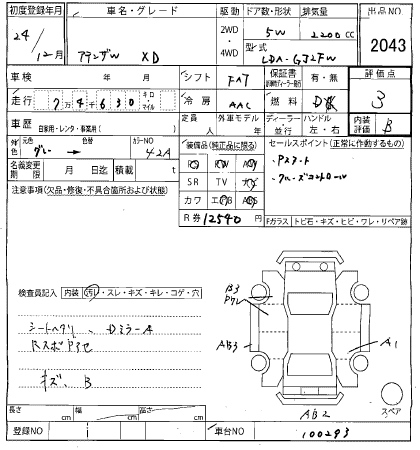 初度登録年月 車名・グレード 駆動 ドア数・形状 排気量 出品NO
24/12月 アテンザW XD 2WD・4WD 5W 2200cc 2043
型式 LDA-GJ2FW
車検 年 月 シフト FAT 保証書 有・無 評価点
走行 7万4千630 キロ・マイル 冷房 AAC 燃料 3
車歴 自家用・レンタ・事業用( ) 定員 人 外車モデル 年 ディーラー・並行 ハンドル 左・右 内装評価 B
外色 元色 グレー 色替 カラーNO 42A 装備品(純正品に限る) セールスポイント(正常に作動するもの)
名義変更期限 月 日迄 積載 t
・Pスタート
SR TV
・クルーズコントロール
注意事項(欠品・修復・不具合箇所および状態)
カワ
R券 12540 円
Fガラス トビ石・キズ・ヒビ・ワレ・リペア跡
検査員記入 内装 汚レ・スレ・キズ・キレ・コゲ・穴
B3
シートヘタリ、DミラーA
AB3 A1
キズ、B
AB2
スペア
長さ cm 幅 cm 高さ cm
登録NO 車台NO 100293